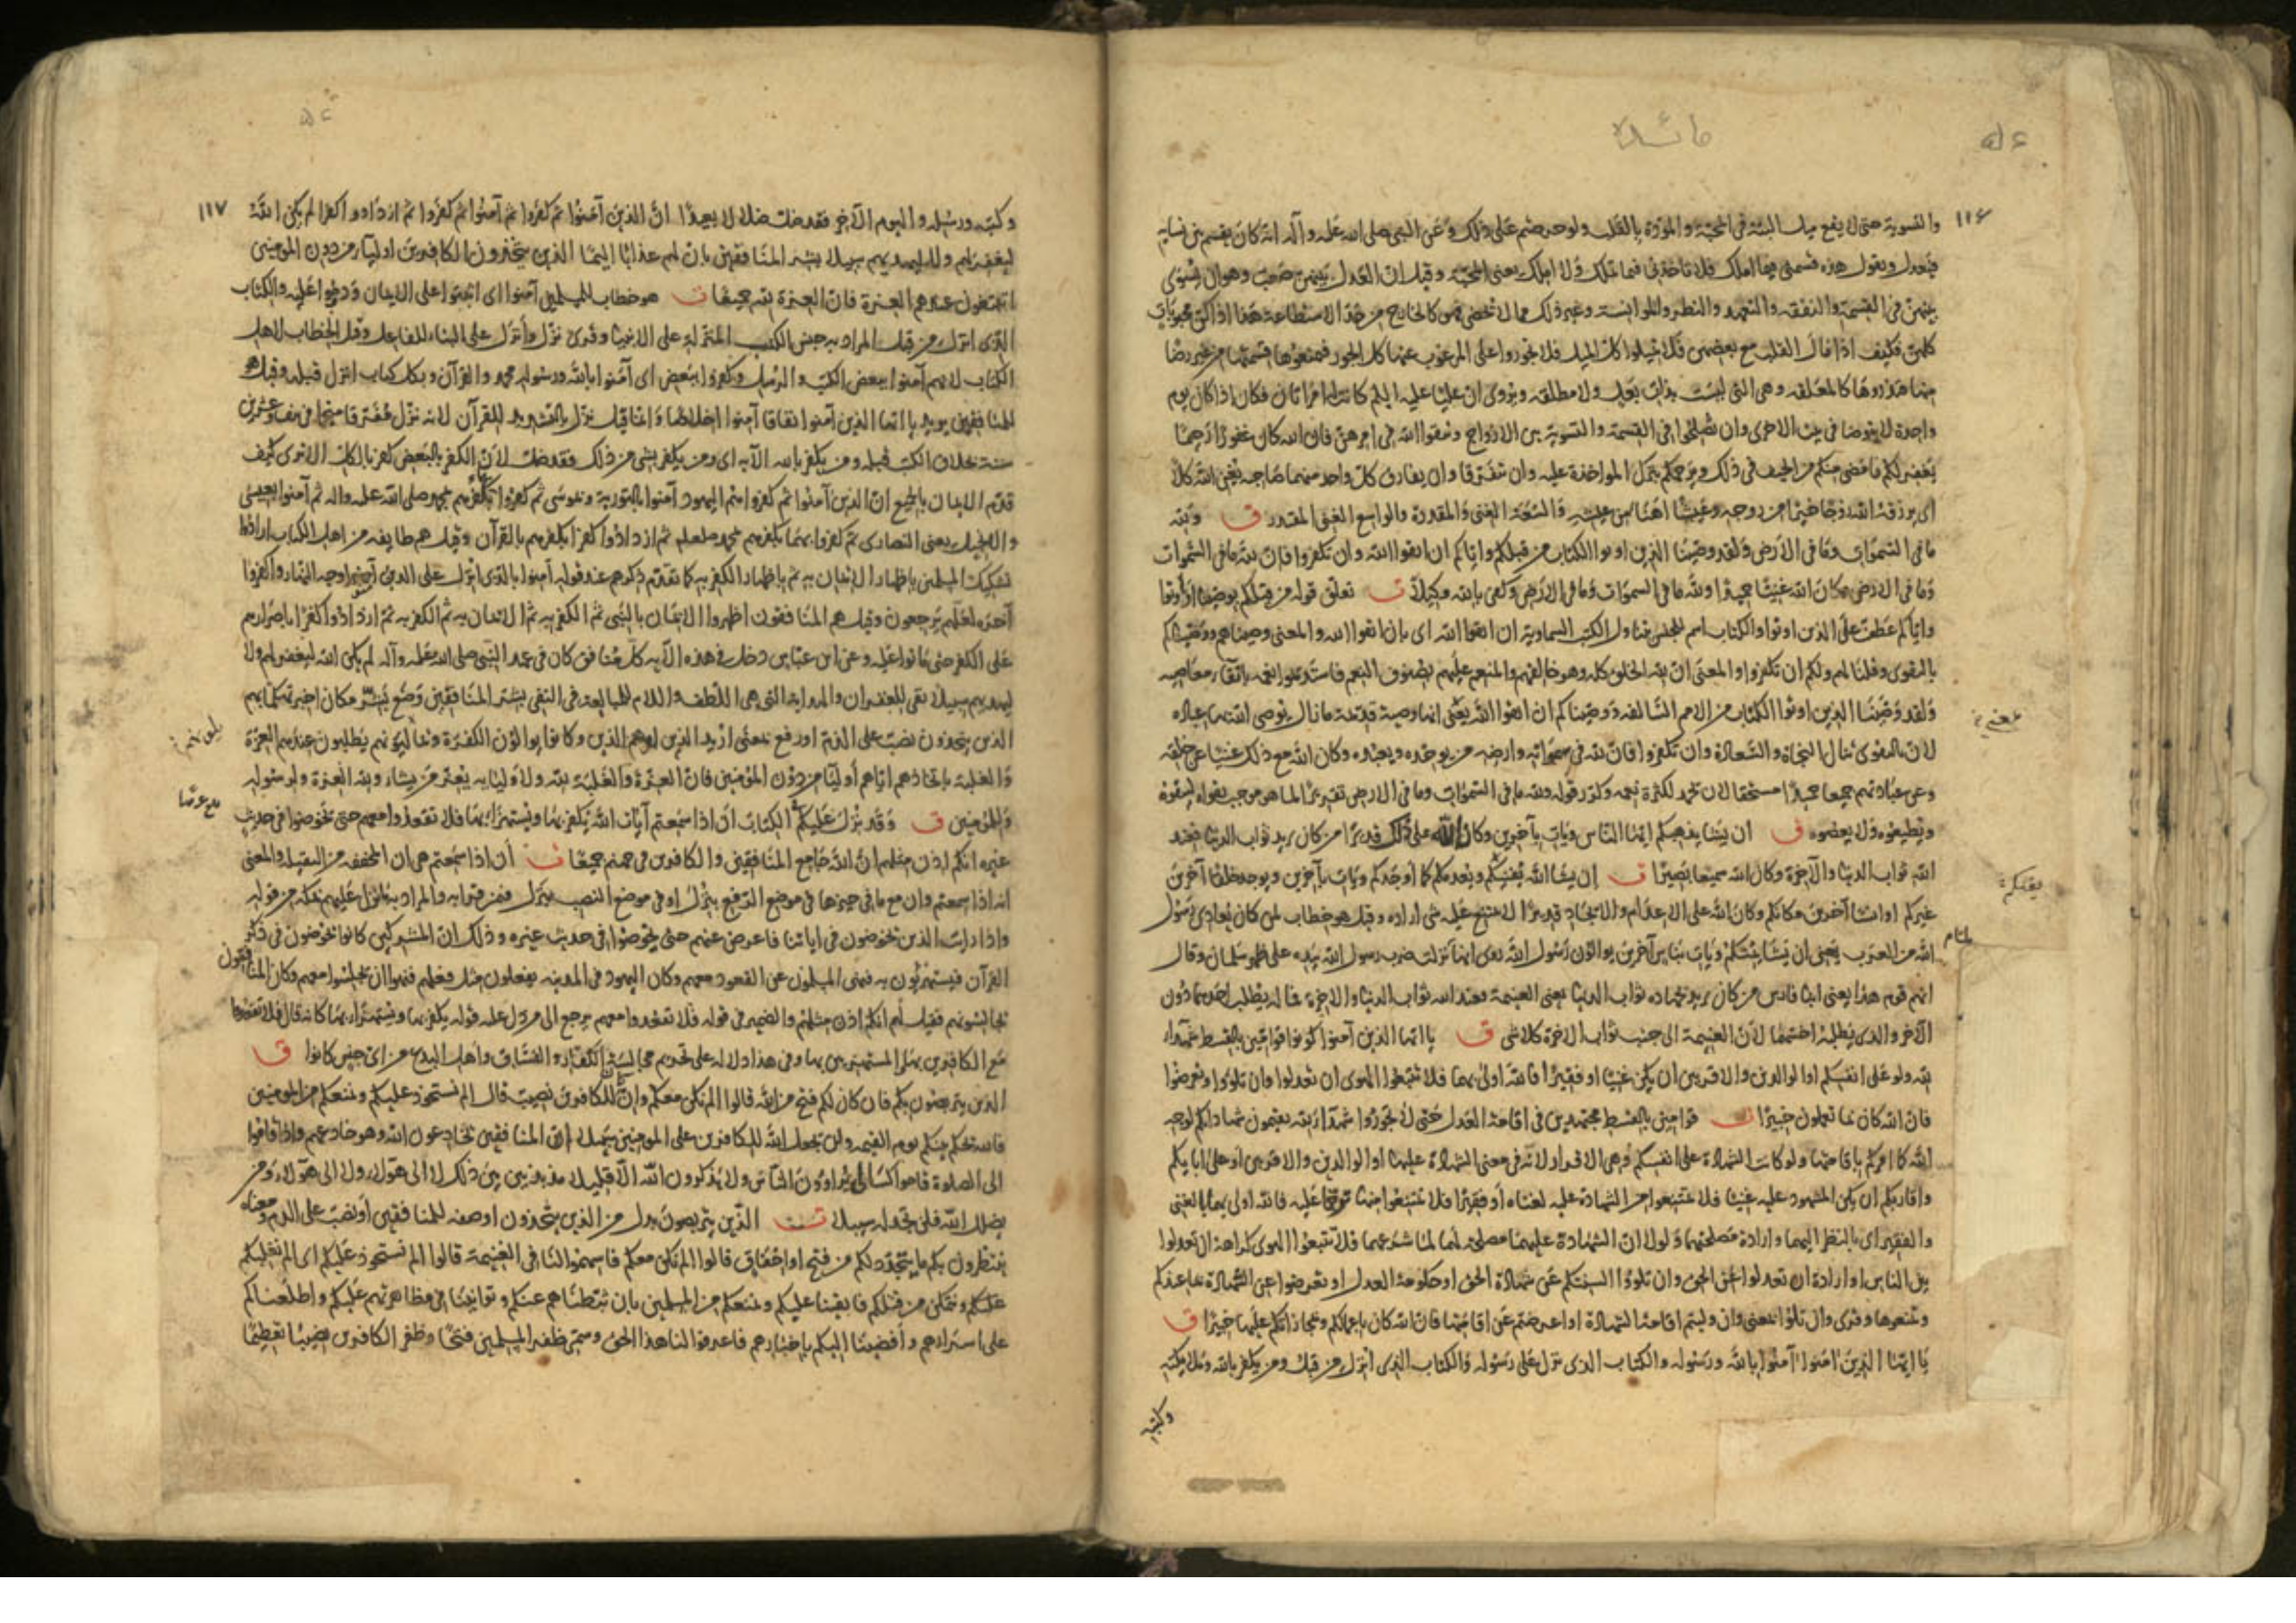 مائده
١١٦
والتسوية حتى لا يقع ميل البتة في المحبة والمودة بالقلب ولو حرصتم على ذلك وعن النبي صلى الله عليه وآله انه كان يقسم بين نسايه
فيعدل ويقول هذه قسمتي فيما املك فلا تاخذني فيما تملك ولا املك يعني المحبة وقيل ان العدل بينهن صعب وهو ان يسوي
بينهن في القسمة والنفقة والتعهد والنظر والموانسة وغير ذلك مما لا يحصى فهو كالخارج من حد الاستطاعة هذا اذا كن محبوبات
كلهن فكيف اذا مال القلب مع بعضهن فلا تميلوا كل الميل فلا تجوروا على المرغوب عنها كل الجور فتمنعوها قسمتها من غير رضا
منها فتذروها كالمعلقة وهي التي ليست بذات بعل ولا مطلقة ويروى ان عليا عليه السلم كانت له امراتان فكان اذا كان يوم
واحدة لا يتوضا في بيت الاخرى وان تصلحوا في القسمة والتسوية بين الازواج وتتقوا الله في امرهن فان الله كان غفورا رحيما
يغفر لكم ما مضى منكم من الحيف في ذلك ويرحمكم بترك المواخذة عليه وان يتفرقا وان يفارق كل واحد منهما صاحبه يغن الله كلا
اى يرزقه الله زوجا خيرا من زوجه وعيشا اهنا من عيشه والسعة الغنى والمقدرة والواسع الغني المقتدر ق ولله
ما في السموات وما في الارض ولقد وصينا الذين اوتوا الكتاب من قبلكم واياكم ان اتقوا الله وان تكفروا فان لله ما في السموات
وما في الارض وكان الله غنيا حميدا ولله ما في السموات وما في الارض وكفى بالله وكيلا ت تعلق قوله من قبلكم بوصينا او اوتوا
واياكم عطف على الذين اوتوا والكتاب اسم للجنس يتناول الكتب السماوية ان اتقوا الله اى بان اتقوا الله والمعنى وصيناهم ووصيناكم
بالتقوى وقلنا لهم ولكم ان تكفروا والمعنى ان لله الخلق كله وهو خالقهم والمنعم عليهم بصنوف النعم فاستديموا نعمه باتقاء معاصيه
ولقد وصينا الذين اوتوا الكتاب من الامم السالفة ووصيناكم ان اتقوا الله يعني انها وصية قديمة ما زال يوصي الله بها عباده
لان بالتقوى ينال النجاة والسعادة وان تكفروا فان لله في سمواته وارضه من يوحده ويعبده وكان الله مع ذلك غنيا عن خلقه
وعن عباداتهم جميعا حميدا مستحقا لان يحمد لكثرة نعمه وكرر قوله ولله ما في السموات وما في الارض تقريرا لما هو موجب تقواه ليتقوه
ويطيعوه ولا يعصوه ق ان يشا يذهبكم ايها الناس ويات بآخرين وكان الله على ذلك قديرا من كان يريد ثواب الدنيا فعند
الله ثواب الدنيا والآخرة وكان الله سميعا بصيرا ت ان يشا الله يفنيكم ويعدمكم كما اوجدكم ويات بآخرين ويوجد خلقا آخرين
غيركم او انسا آخرين مكانكم وكان الله على الاعدام والايجاد قديرا لا يمتنع عليه شى اراده وقيل هو خطاب لمن كان يعادى رسول
الله من العرب يعني ان يشا يمتكم ويات بناس آخرين يوالون رسول الله روى انها نزلت ضرب رسول الله بيده على ظهر سلمان وقال
انهم قوم هذا يعني ابنا فارس من كان يريد بجهاده ثواب الدنيا يعني الغنيمة فعند الله ثواب الدنيا والاخرة فما له يطلب احدهما دون
الآخر والذى يطلبه اخسهما لان الغنيمة الى جنب ثواب الاخرة كلا شى ق يا ايها الذين آمنوا كونوا قوامين بالقسط شهداء
لله ولو على انفسكم او الوالدين والاقربين ان يكن غنيا او فقيرا فالله اولى بهما فلا تتبعوا الهوى ان تعدلوا وان تلووا او تعرضوا
فان الله كان بما تعملون خبيرا ت قوامين بالقسط مجتهدين في اقامة العدل حتى لا تجوروا شهداء لله تقيمون شهاداتكم لوجه
الله كما امركم باقامتها ولو كانت الشهادة على انفسكم وهي الاقرار لانه في معنى الشهادة عليها او الوالدين والاقربين او على آبايكم
واقاربكم ان يكن المشهود عليه غنيا فلا تمتنعوا من الشهادة عليه لغناه او فقيرا فلا تمتنعوا منها ترحما عليه فالله اولى بهما بالغني
والفقير اى بالنظر اليهما وارادة مصلحتهما ولولا ان الشهادة عليهما مصلحة لهما لما شرعها فلا تتبعوا الهوى كراهة ان تعدلوا
بين الناس او ارادة ان تعدلوا عن الحق وان تلووا السنتكم عن شهادة الحق او حكومة العدل او تعرضوا عن الشهادة بما عندكم
وتمنعوها وقرى وان تلوا بمعنى وان وليتم اقامة الشهادة او اعرضتم عن اقامتها فان الله كان باعمالكم ومجازاتكم عليها خبيرا ق
يا ايها الذين امنوا آمنوا بالله ورسوله والكتاب الذى نزل على رسوله والكتاب الذى انزل من قبل ومن يكفر بالله وملايكته
وكتبه
١١٧
وكتبه ورسله واليوم الآخر فقد ضل ضلالا بعيدا ان الذين آمنوا ثم كفروا ثم آمنوا ثم كفروا ثم ازدادوا كفرا لم يكن الله
ليغفر لهم ولا ليهديهم سبيلا بشر المنافقين بان لهم عذابا اليما الذين يتخذون الكافرين اوليآء من دون المومنين
ايبتغون عندهم العزة فان العزة لله جميعا ت هو خطاب للمسلمين آمنوا اى اثبتوا على الايمان ودوموا عليه والكتاب
الذى انزل من قبل المراد به جنس الكتب المنزلة على الانبيا وقرئ نزل وأنزل على البناء للفاعل وقيل الخطاب لاهل
الكتاب لانهم آمنوا ببعض الكتب والرسل وكفروا ببعض اى آمنوا بالله ورسوله محمد والقرآن وبكل كتاب انزل قبله وقيل هو
للمنافقين يريد يا ايها الذين آمنوا نفاقا آمنوا اخلاصا وانما قيل نزل بالتشديد للقرآن لانه نزل مفرقا منجما في نيف وعشرين
سنة بخلاف الكتب قبله ومن يكفر بالله الآية اى ومن يكفر بشى من ذلك فقد ضل لان الكفر بالبعض كفر بالكل الا ترى كيف
قدم الايمان بالجميع ان الذين آمنوا ثم كفروا منهم اليهود آمنوا بالتورية وبموسى ثم كفروا بكفرهم بمحمد صلى الله عليه واله ثم آمنوا بعيسى
والانجيل يعني النصارى ثم كفروا بهما بكفرهم بمحمد صلعم ثم ازدادوا كفرا بكفرهم بالقرآن وقيل هم طايفة من اهل الكتاب ارادوا
تشكيك المسلمين باظهار الايمان به ثم باظهار الكفر به كما تقدم ذكرهم عند قوله آمنوا بالذى انزل على الذين آمنوا وجه النهار واكفروا
آخره لعلهم يرجعون وقيل هم المنافقون اظهروا الايمان بالنبي ثم الكفر به ثم الايمان به ثم الكفر به ثم ازدادوا كفرا باصرارهم
على الكفر حتى ماتوا عليه وعن ابن عباس دخل في هذه الآية كل منافق كان في عهد النبي صلى الله عليه وآله لم يكن الله ليغفر لهم ولا
ليهديهم سبيلا نفي للغفران والهداية التي هي اللطف واللام للمبالغة في النفي بشر المنافقين وضع بشر مكان اخبر تهكما بهم
الذين يتخذون نصب على الذم او رفع بمعنى اريد الذين او هم الذين وكانوا يوالون الكفرة يطلبون عندهم العزة
والغلبة باتخاذهم اياهم أوليا من دون المؤمنين فان العزة والغلبة لله ولاوليايه يعز من يشاء ولله العزة ولرسوله
وللمؤمنين ق وقد نزل عليكم في الكتاب ان اذا سمعتم آيات الله يكفر بها ويستهزا بها فلا تقعدوا معهم حتى يخوضوا في حديث
غيره انكم اذن مثلهم ان الله جامع المنافقين والكافرين في جهنم جميعا ت أن اذا سمعتم هي ان المخففة من الثقيلة والمعنى
انه اذا سمعتم وان مع ما في حيزها في موضع الرفع بنزل او في موضع النصب بنزل فيمن قرا به والمراد به ما نزل عليهم بمكة من قوله
واذا رايت الذين يخوضون في اياتنا فاعرض عنهم حتى يخوضوا في حديث غيره وذلك ان المشركين كانوا يخوضون في ذكر
القرآن فيستهزئون به فنهى المسلمون عن القعود معهم وكان اليهود في المدينة يفعلون مثل فعلهم فنهوا ان يجالسوا معهم وكان المنافقون
يجالسونهم فقيل لهم انكم اذن مثلهم والضمير في قوله فلا تقعدوا معهم يرجع الى من دل عليه قوله يكفر بها ويستهزا بها كانه قال فلا تقعدوا
مع الكافرين بها والمستهزئين بها وفي هذا دلالة على تحريم مجالسة الكفار والفساق واهل البدع من اى جنس كانوا ق
الذين يتربصون بكم فان كان لكم فتح من الله قالوا الم نكن معكم وان كان للكافرين نصيب قالوا الم نستحوذ عليكم ونمنعكم من المومنين
فالله يحكم بينكم يوم القيمة ولن يجعل الله للكافرين على المومنين سبيلا ان المنافقين يخادعون الله وهو خادعهم واذا قاموا
الى الصلوة قاموا كسالى يراون الناس ولا يذكرون الله الا قليلا مذبذبين بين ذلك لا الى هؤلاء ولا الى هؤلاء ومن
يضلل الله فلن تجد له سبيلا ت الذين يتربصون بدل من الذين يتخذون او صفة للمنافقين او نصب على الذم ومعناه
ينتظرون بكم ما يتجدد لكم من فتح او اخفاق قالوا الم نكن معكم فاسهموا لنا في الغنيمة قالوا الم نستحوذ عليكم اى الم نغلبكم
عليكم ونتمكن من قتلكم فابقينا عليكم ونمنعكم من المسلمين بان ثبطناهم عنكم وتوانينا في مظاهرتهم عليكم واطلعناكم
على اسرارهم وأفضينا اليكم باخبارهم فاعرفوا لنا هذا الحق وسمى ظفر المسلمين فتحا وظفر الكافرين نصيبا تعظيما